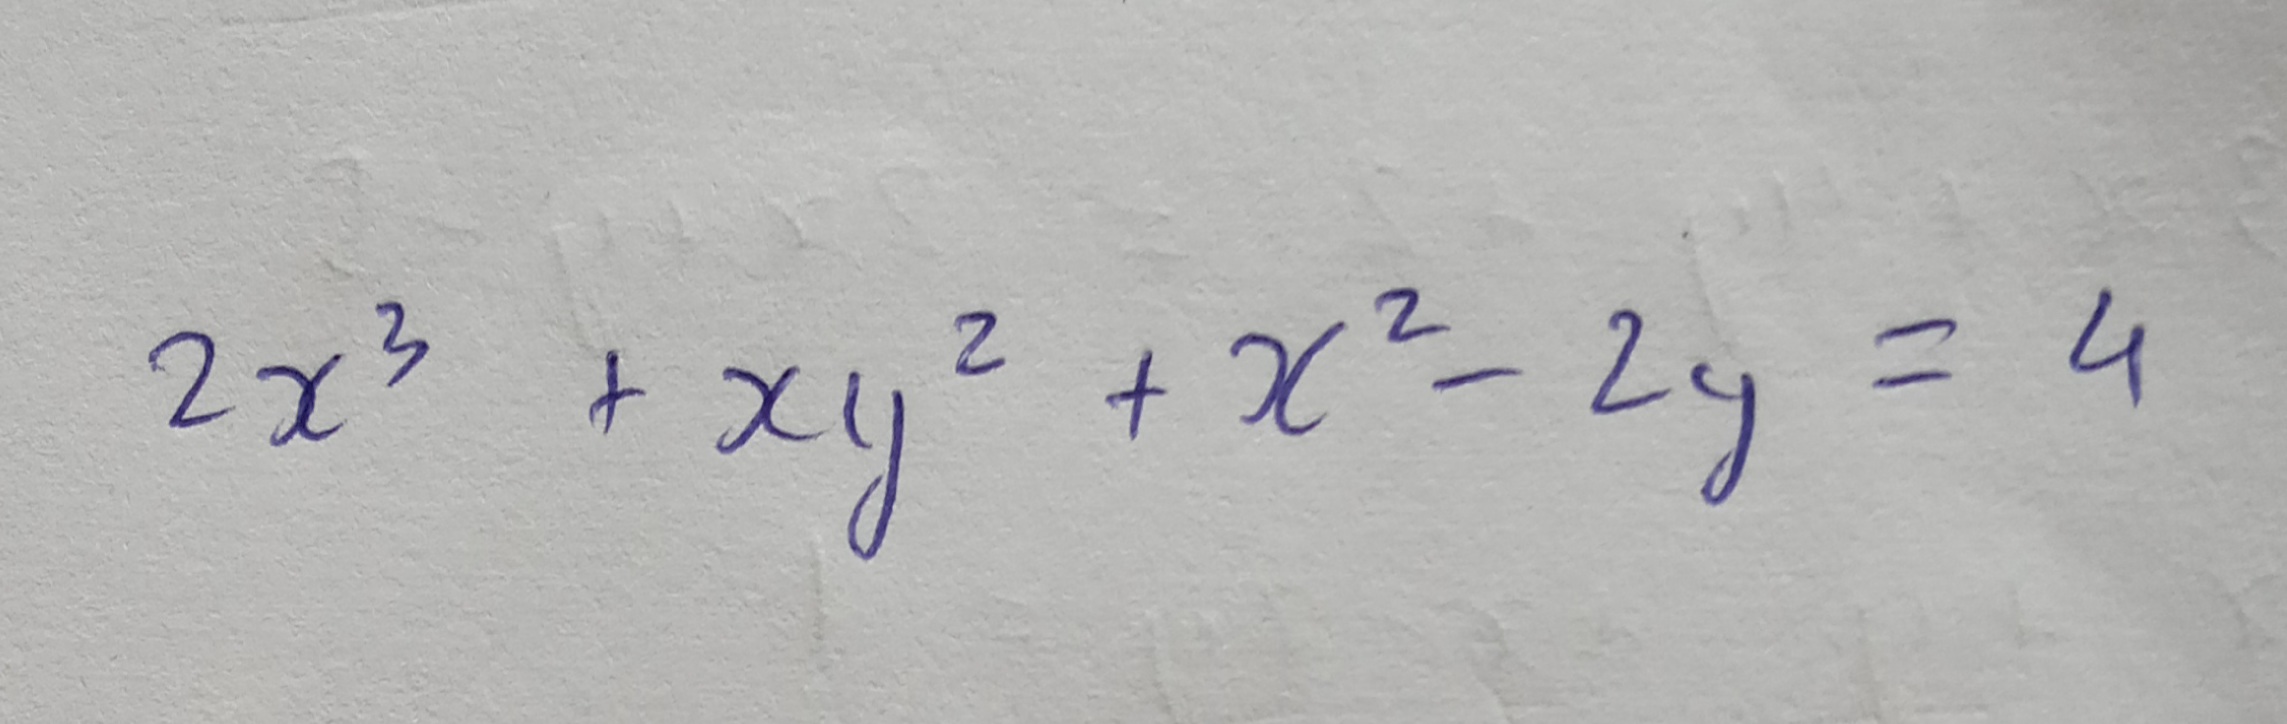 2x³ + xy² + x² - 2y = 4